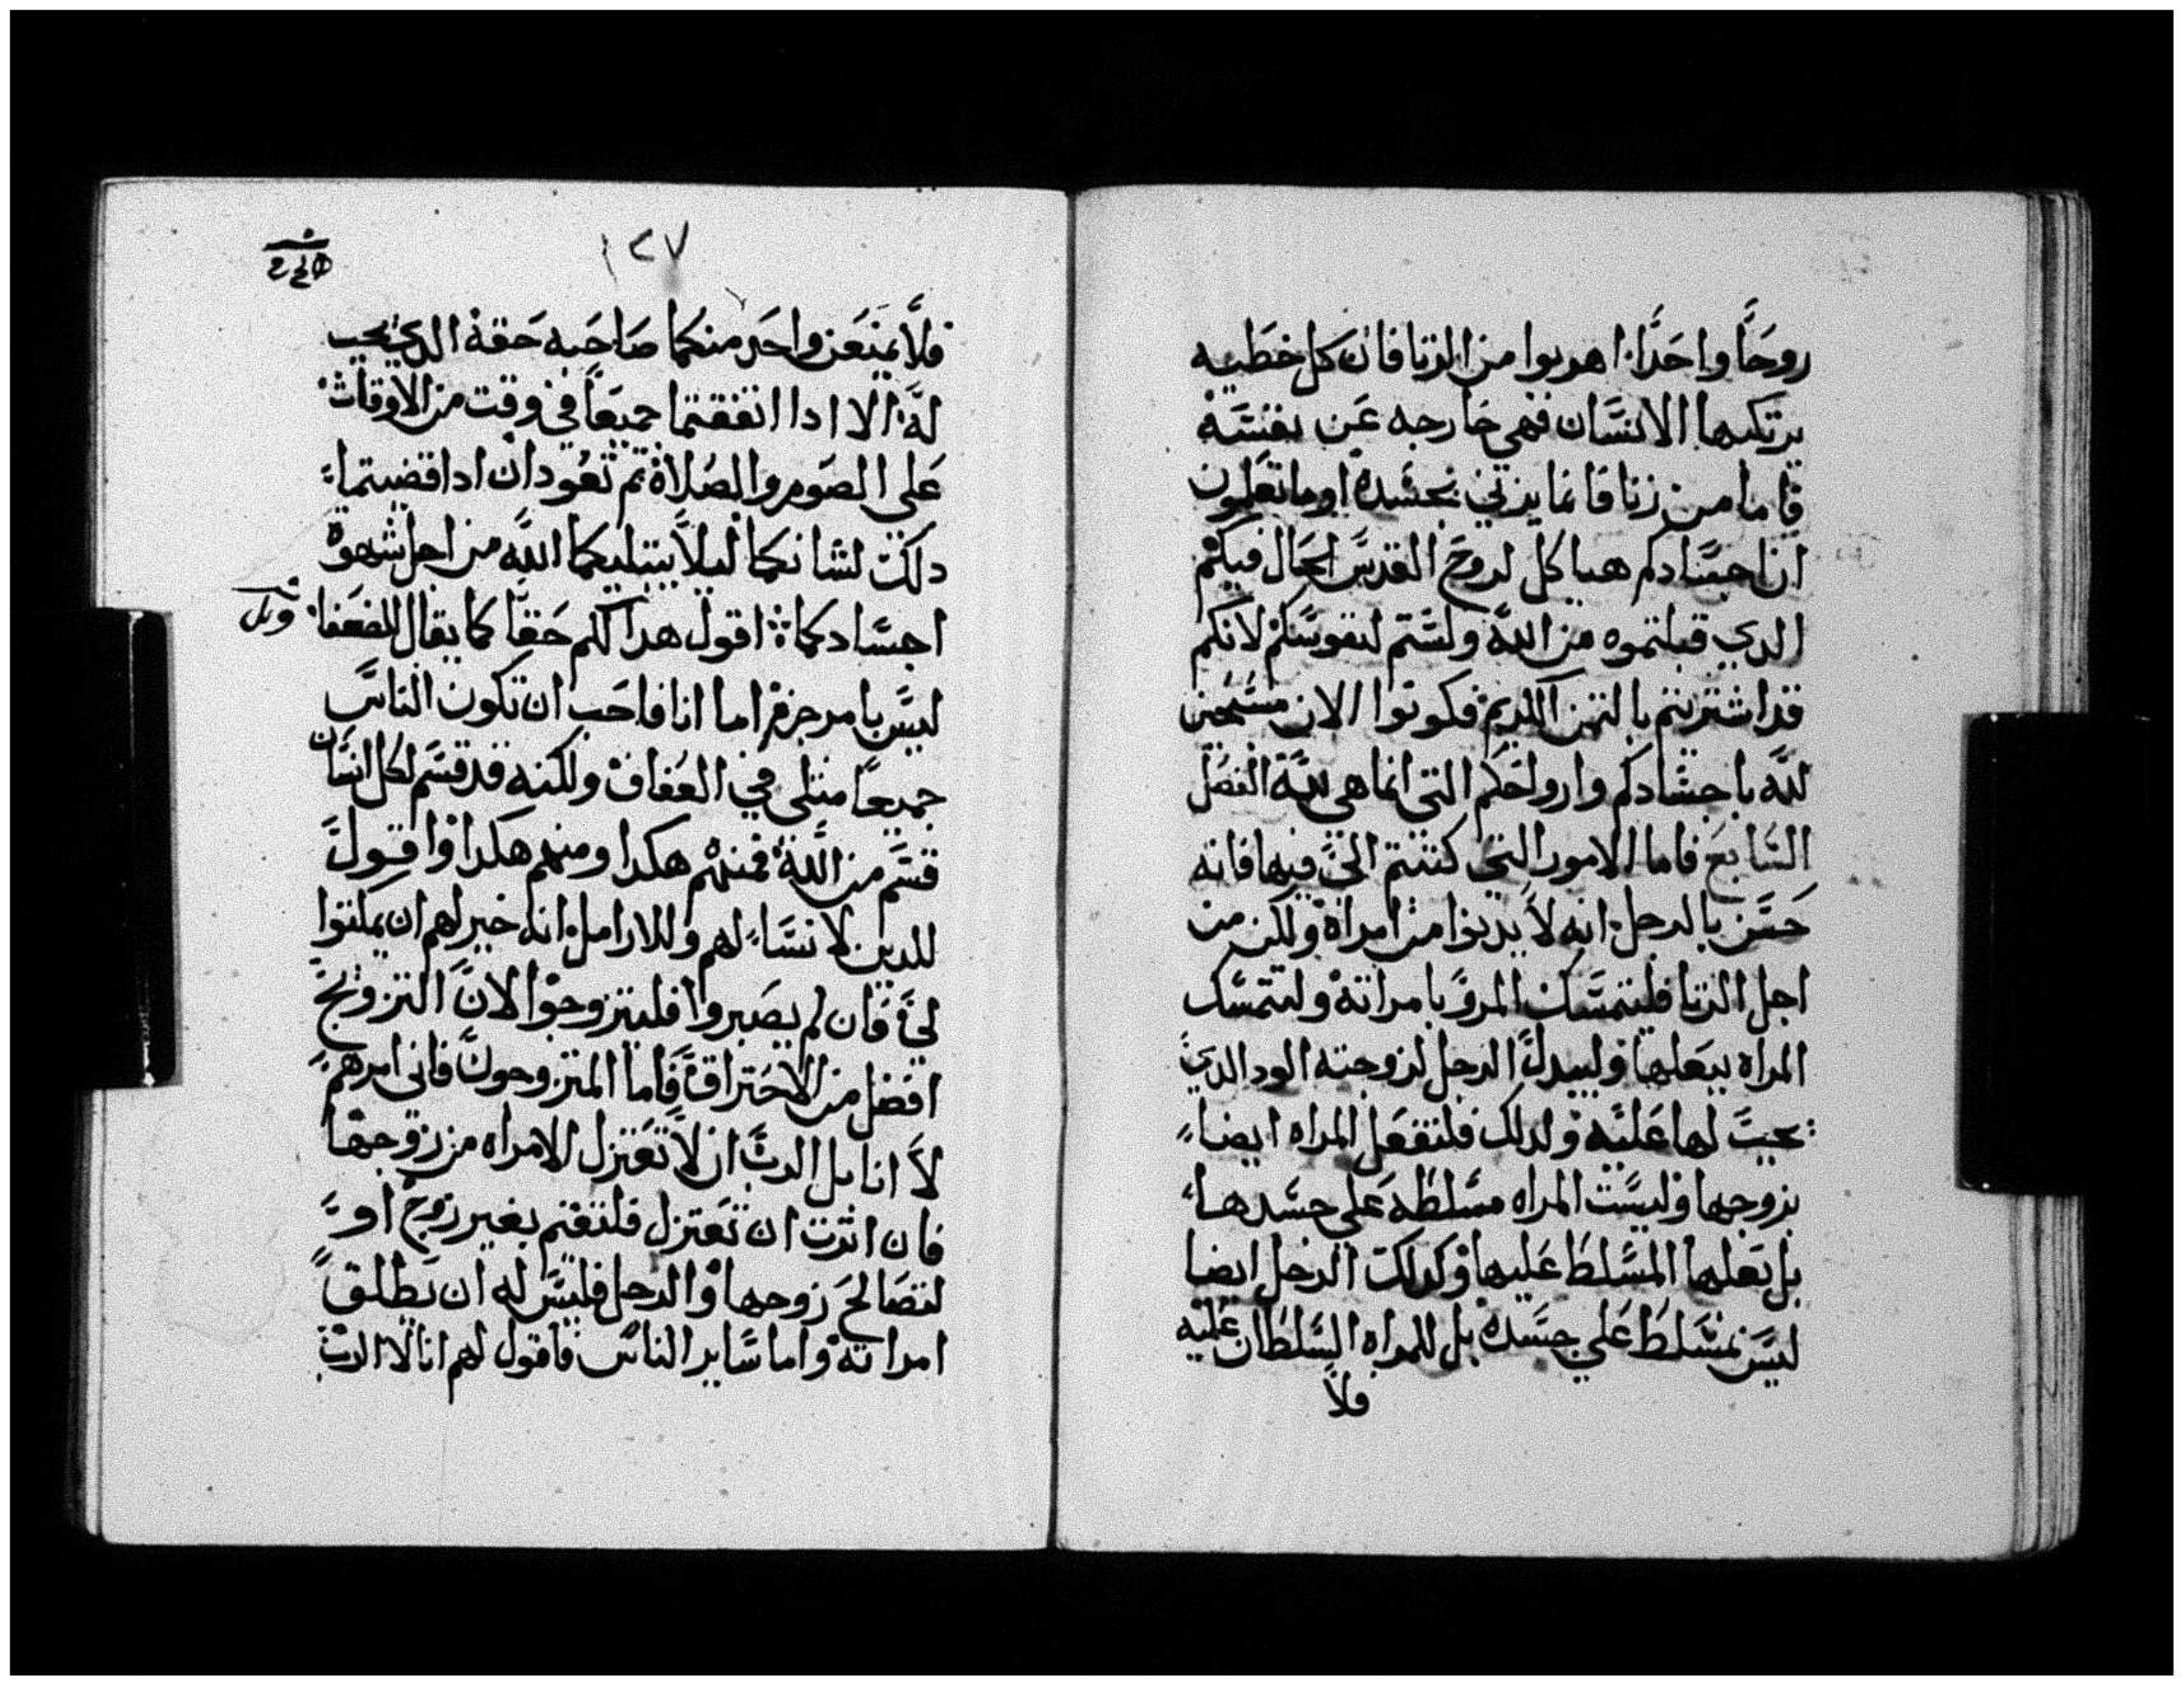 روحًا واحدًا اهربوا من الزنا فان كل خطيه
يرتكبها الانسان فهي خارجه عن نفسه
فاما من زنا فانما يزني بجسده اوما تعلمون
ان اجسادكم هياكل لروح القدس الحال فيكم
الدي قبلتموه من الله ولستم لنفوسكم لانكم
قد اشتريتم بالتمن الكريم فكونوا الان مسبحين
لله باجسادكم وارواحكم التي انما هي لله الفصل
السابع فاما الامور التي كتبتم الي فيها فانه
حسن بالرجل انه لا يدنوا من امراة ولكن من
اجل الزنا فليتمسك المرو بامراته ولتتمسك
المراه ببعلها وليبدل الرجل لزوجته الود الدي
يجب لها عليه ولدلك فلتفعل المراه ايضاء
بزوجها وليست المراه مسلطه على جسدها
بل بعلها المسلط عليها وكدلك الرجل ايضا
ليس بمسلط علي جسده بل للمراه السلطان عليه
فلا
١٢٧
فلا يمنعن واحد منكما صاحبه حقه الدي يجب
له الا ادا اتفقتما جميعًا في وقت من الاوقات
على الصوم والصلاة تم تعودان ادا قضيتما
دلك لشانكما ليلا يبتليكما الله من اجل شهوة
اجسادكما اقول هدا لكم حقًا كما يقال للضعفا
ليس بامر جزم اما انا فاحب ان تكون الناس
جميعا متلي في العفاف ولكنه قد قسم لكل انسان
قسم من الله فمنهم هكدا ومنهم هكدا واقول
للدين لا نساء لهم وللارامل انه خير لهم ان يمكتوا
فان لم يصبروا فليتزوجوا لان التزويج
افضل من الاحتراق فاما المتزوجون فاني امرهم
لا انا بل الرب ان لا تعتزل الامراه من زوجها
فان اثرت ان تعتزل فلتقم بغير زوج او
لتصالح زوجها والرجل فليس له ان يطلق
امراته واما ساير الناس فاقول لهم انا لا الرب